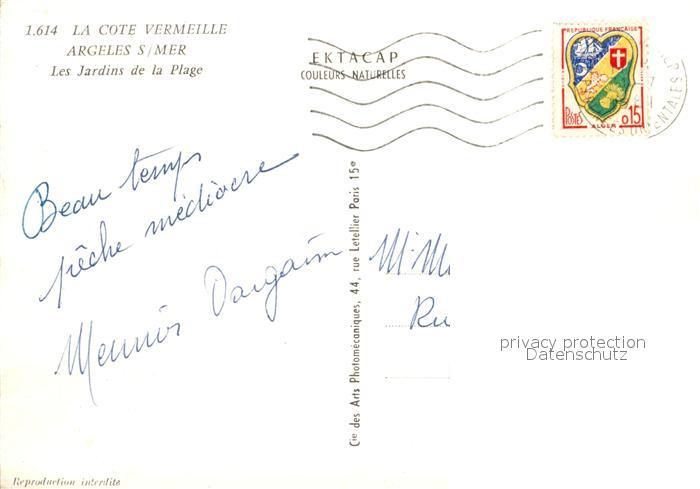 1.614 LA COTE VERMEILLE
ARGELES S/MER
Les Jardins de la Plage
EKTACAP
COULEURS NATURELLES
REPUBLIQUE FRANÇAISE
POSTES
ALGER
0,15
Beau temps
pêche médiocre
Cie des Arts Photomécaniques, 44, rue Letellier Paris 15e
Ru
privacy protection
Datenschutz
Reproduction interdite